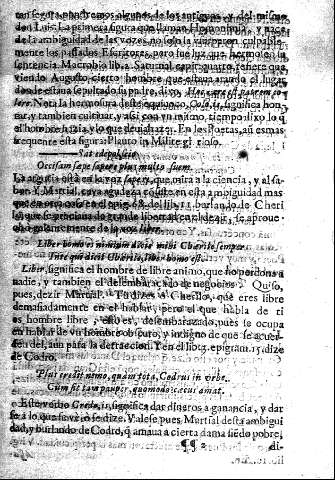 ten segura, pondremos algunos de los antiguos, y del mismo
don Luis. La primera figura que llaman Homonymia, nace
de la ambiguidad de las vozes
mente los passados Escritores, pero fue la que hermoseò la
sentencia. Macrobio lib. 2. Saturnal. capit. quarto, refiere que
viendo Augusto, cierto hombre que estaua arando el lugar
donde estaua sepultado su padre, dixo, Hoc vere est patrem co
lere. Nota la hermosura deste equiuoco, Colo, is, significa honrar,
y tambien cultiuar, y assi con vn mismo tiempo dixo lo q̃
el hombre hazia, y lo que deuia hazer. En los Poetas, aũ es mas
frequente esta figura. Plauto in Milite glorioso.
Sat edepol scio
Occisam sæpe sapere plus multo suem.
La argucia està en la voz sapere, que mira a la ciencia, y al sabor.
Y Martial, cuya agudeza consiste en esta ambiguidad mas
que en otra cosa en el epig. 68. del lib. 11. burlando de Cheri
lo
que se preciaua de grande libertad en el dezir, se aproue-
chò galanamente de la voz liber.
Liber homo es nimium dicis mihi Cherile semper.
In te qui dicit Cherile, liber homo est.
Liber, significa el hombre de libre animo, que no perdona a
nadie, y tambien el desembaraçado de negocios. Quiso,
pues, dezir Martial. Tu dizes ò Cherilo, que eres libre
demasiadamente en el hablar, pero el que habla de ti
es hombre libre, esto es, desembaraçado, pues se ocupa
en hablar de vn hombre obscuro, y indigno de que se acuerden
del, aun para la detraccion. Y en el lib. 2. epigram. 15. dize
de Codro.
Plus credit nemo, quam tota, Codrus in vrbe.
Cum sit tam pauper, quomodo: cæcus amat.
Este verbo Credo, is, significa dar dineros a ganancia, y dar
fe a lo que se vee o se dize. Valese pues Martial desta ambigui
dad, y burlando de Codro, q̃ amaua a cierta dama siẽdo pobre,
¶¶ 2
di-